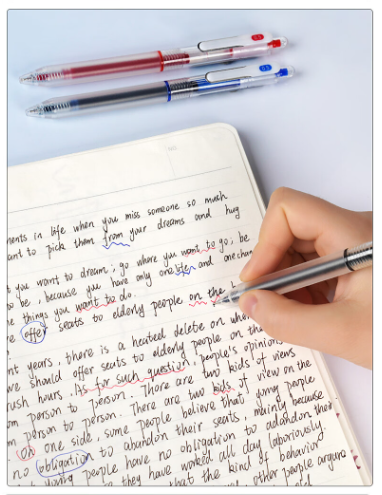 ments in life when you miss someone so much
ant to pick them from your dreams and hug
t you want to dream; go where you want to go; be
o be, because you have only one life and one chan
e things you want to do.
offer seats to elderly people on the
nt years, there is a heated debate on whe
we should offer seats to elderly people on the
rush hours. As for such question, people's opinions
om person to person. There are two kids of views
m person to person. There are two kids of view on the
On one side, some people believe that young people
no obligation to abandon their seats, mainly because
young people have no obligation to adandon their
they have worked all day laboriously
that the kind of behavior
other people argue